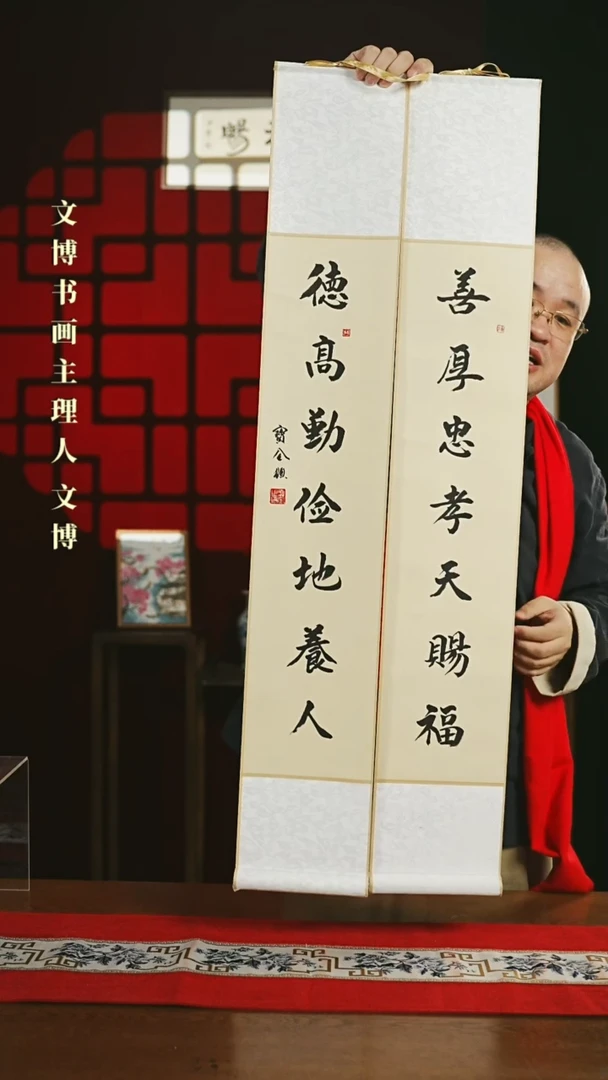 文博书画主理人 文博
善厚忠孝天賜福
德高勤俭地養人